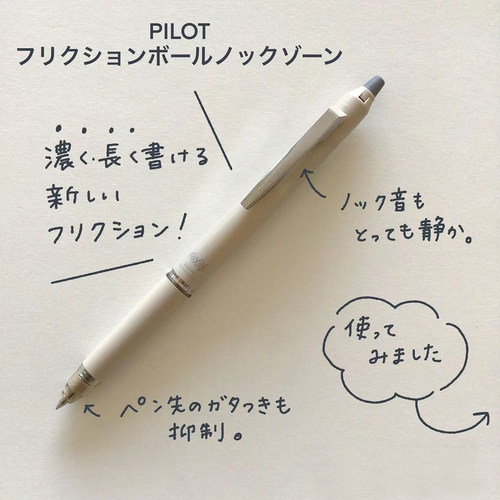 PILOT
フリクションボールノックゾーン
濃く・長く書ける
新しい
フリクション!
ノック音も
とっても静か。
使って
みました
ペン先のガタつきも
抑制。